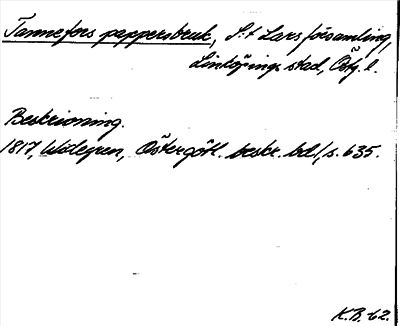 Tannefors pappersbruk, S:t Lars församling,
Linköpings stad, Östg. l.
Beskrivning.
1817, Widegren, Östergötl. beskr. bd 1, s. 635.
K.B. 62.